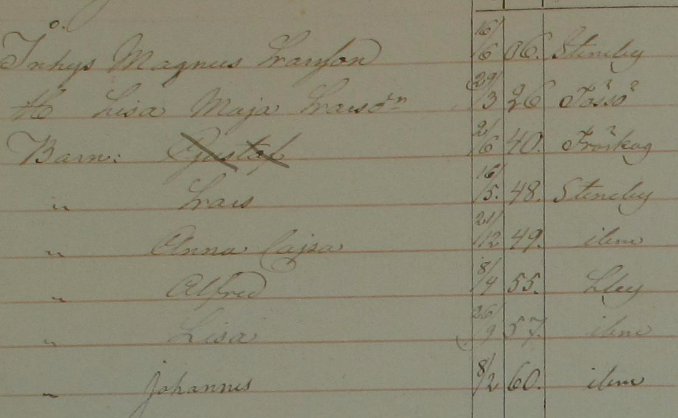 Inhys Magnus Larsson 16/6 06. Steneby
H Lisa Maja Larsdr 29/3 26 Tössö
Barn: Gustaf 2/6 40. Fröskog
" Lars 16/5. 48. Steneby
" Anna Cajsa 21/12 49. ibm
" Alfred 8/9 55.
" Lisa 26/9 57. ibm
" Johannes 8/2 60. ibm